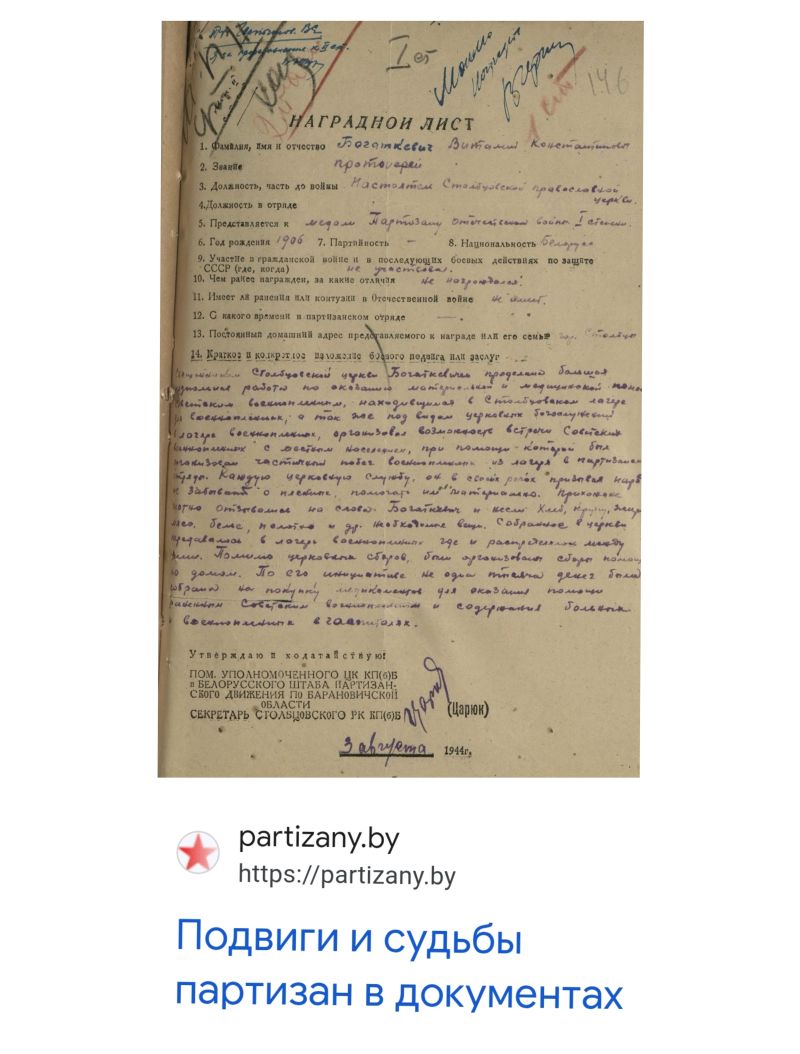 I ст
146
НАГРАДНОЙ ЛИСТ
1. Фамилия, имя и отчество Богаткевич Виталий Константинович
2. Звание протоиерей
3. Должность, часть до войны Настоятель Столбцовской православной
церкви.
4. Должность в отряде
5. Представляется к медали Партизану отечественной войны I степени.
6. Год рождения 1906 7. Партийность – 8. Национальность Белорус
9. Участие в гражданской войне и в последующих боевых действиях по защите
СССР (где, когда) не участвовал.
10. Чем ранее награжден, за какие отличия не награждался.
11. Имеет ли ранения или контузии в Отечественной войне не имеет.
12. С какого времени в партизанском отряде —
13. Постоянный домашний адрес представляемого к награде или его семьи гор. Столбцы
14. Краткое и конкретное изложение боевого подвига или заслуг
Столбцовской церкви Богаткевичем проделана большая
работа по оказанию материальной и медицинской
военнопленным, находившимся в Столбцовском лагере
военнопленных, а так же под видом церковных богослужений
лагере военнопленных, организовал возможность встречи Советских
с местным населением, при помощи которой был
частичный побег военнопленных из лагеря в
Каждую церковную службу, он в своей речи призывал
забывать о пленных, помогать им материально. Прихожане
отзывались на слова Богаткевич и несли хлеб, крупу,
белье, полотно и др. необходимые вещи. Собранное в церкви
в лагерь военнопленных где и распределялось между
Помимо церковных сборов, были организованы сборы
домам. По его инициативе не одна тысяча денег была
собрана на покупку медикаментов для оказания помощи
раненным Советским военнопленным и содержания больных
военнопленных в госпиталях.
Утверждаю и ходатайствую:
ПОМ. УПОЛНОМОЧЕННОГО ЦК КП(б)Б
и БЕЛОРУССКОГО ШТАБА ПАРТИЗАН-
СКОГО ДВИЖЕНИЯ ПО БАРАНОВИЧСКОЙ
ОБЛАСТИ
СЕКРЕТАРЬ СТОЛБЦОВСКОГО РК КП(б)Б (Царюк)
3 августа 1944г.
partizany.by
https://partizany.by
Подвиги и судьбы
партизан в документах